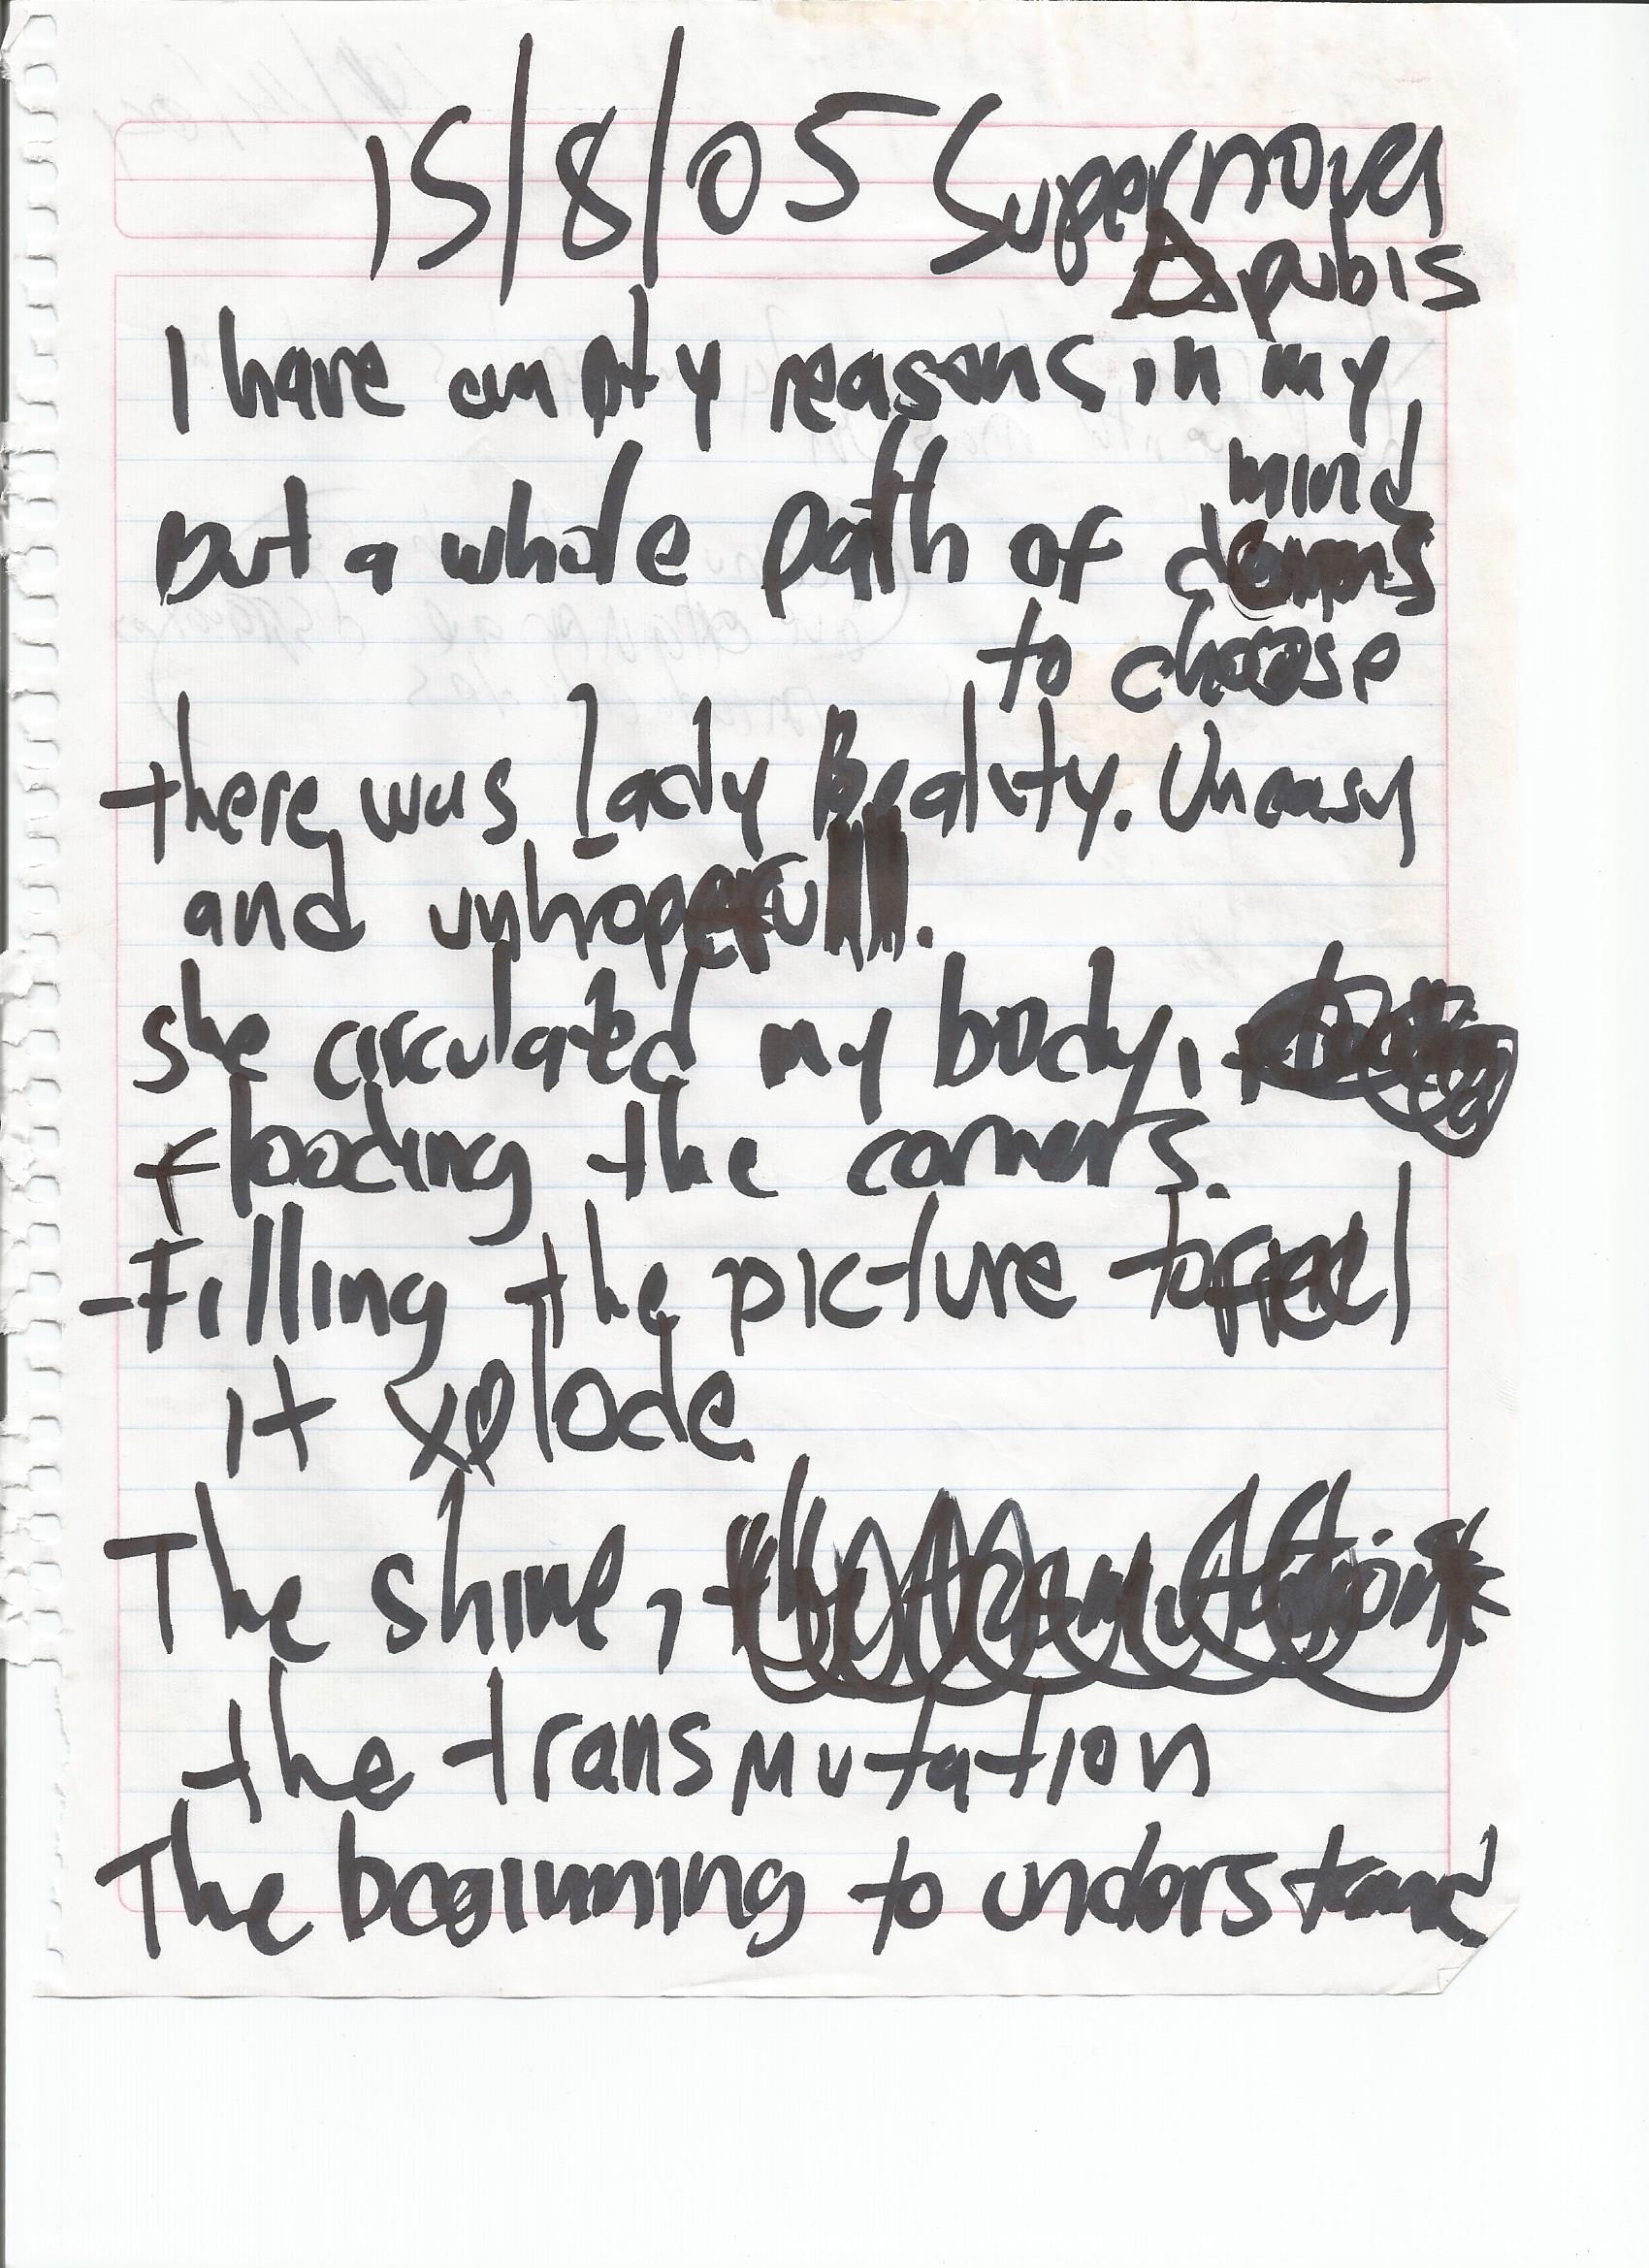 15/8/05 Supernova
Δ pubis
I have empty reasons in my
mind
But a whole path of demons
to choose
there was Lady Reality. Uneasy
and unhopefull.
she circulated my body,
flooding the corners.
-Filling the picture to feel
it xplode
The shine,
the transmutation
The beginning to understand